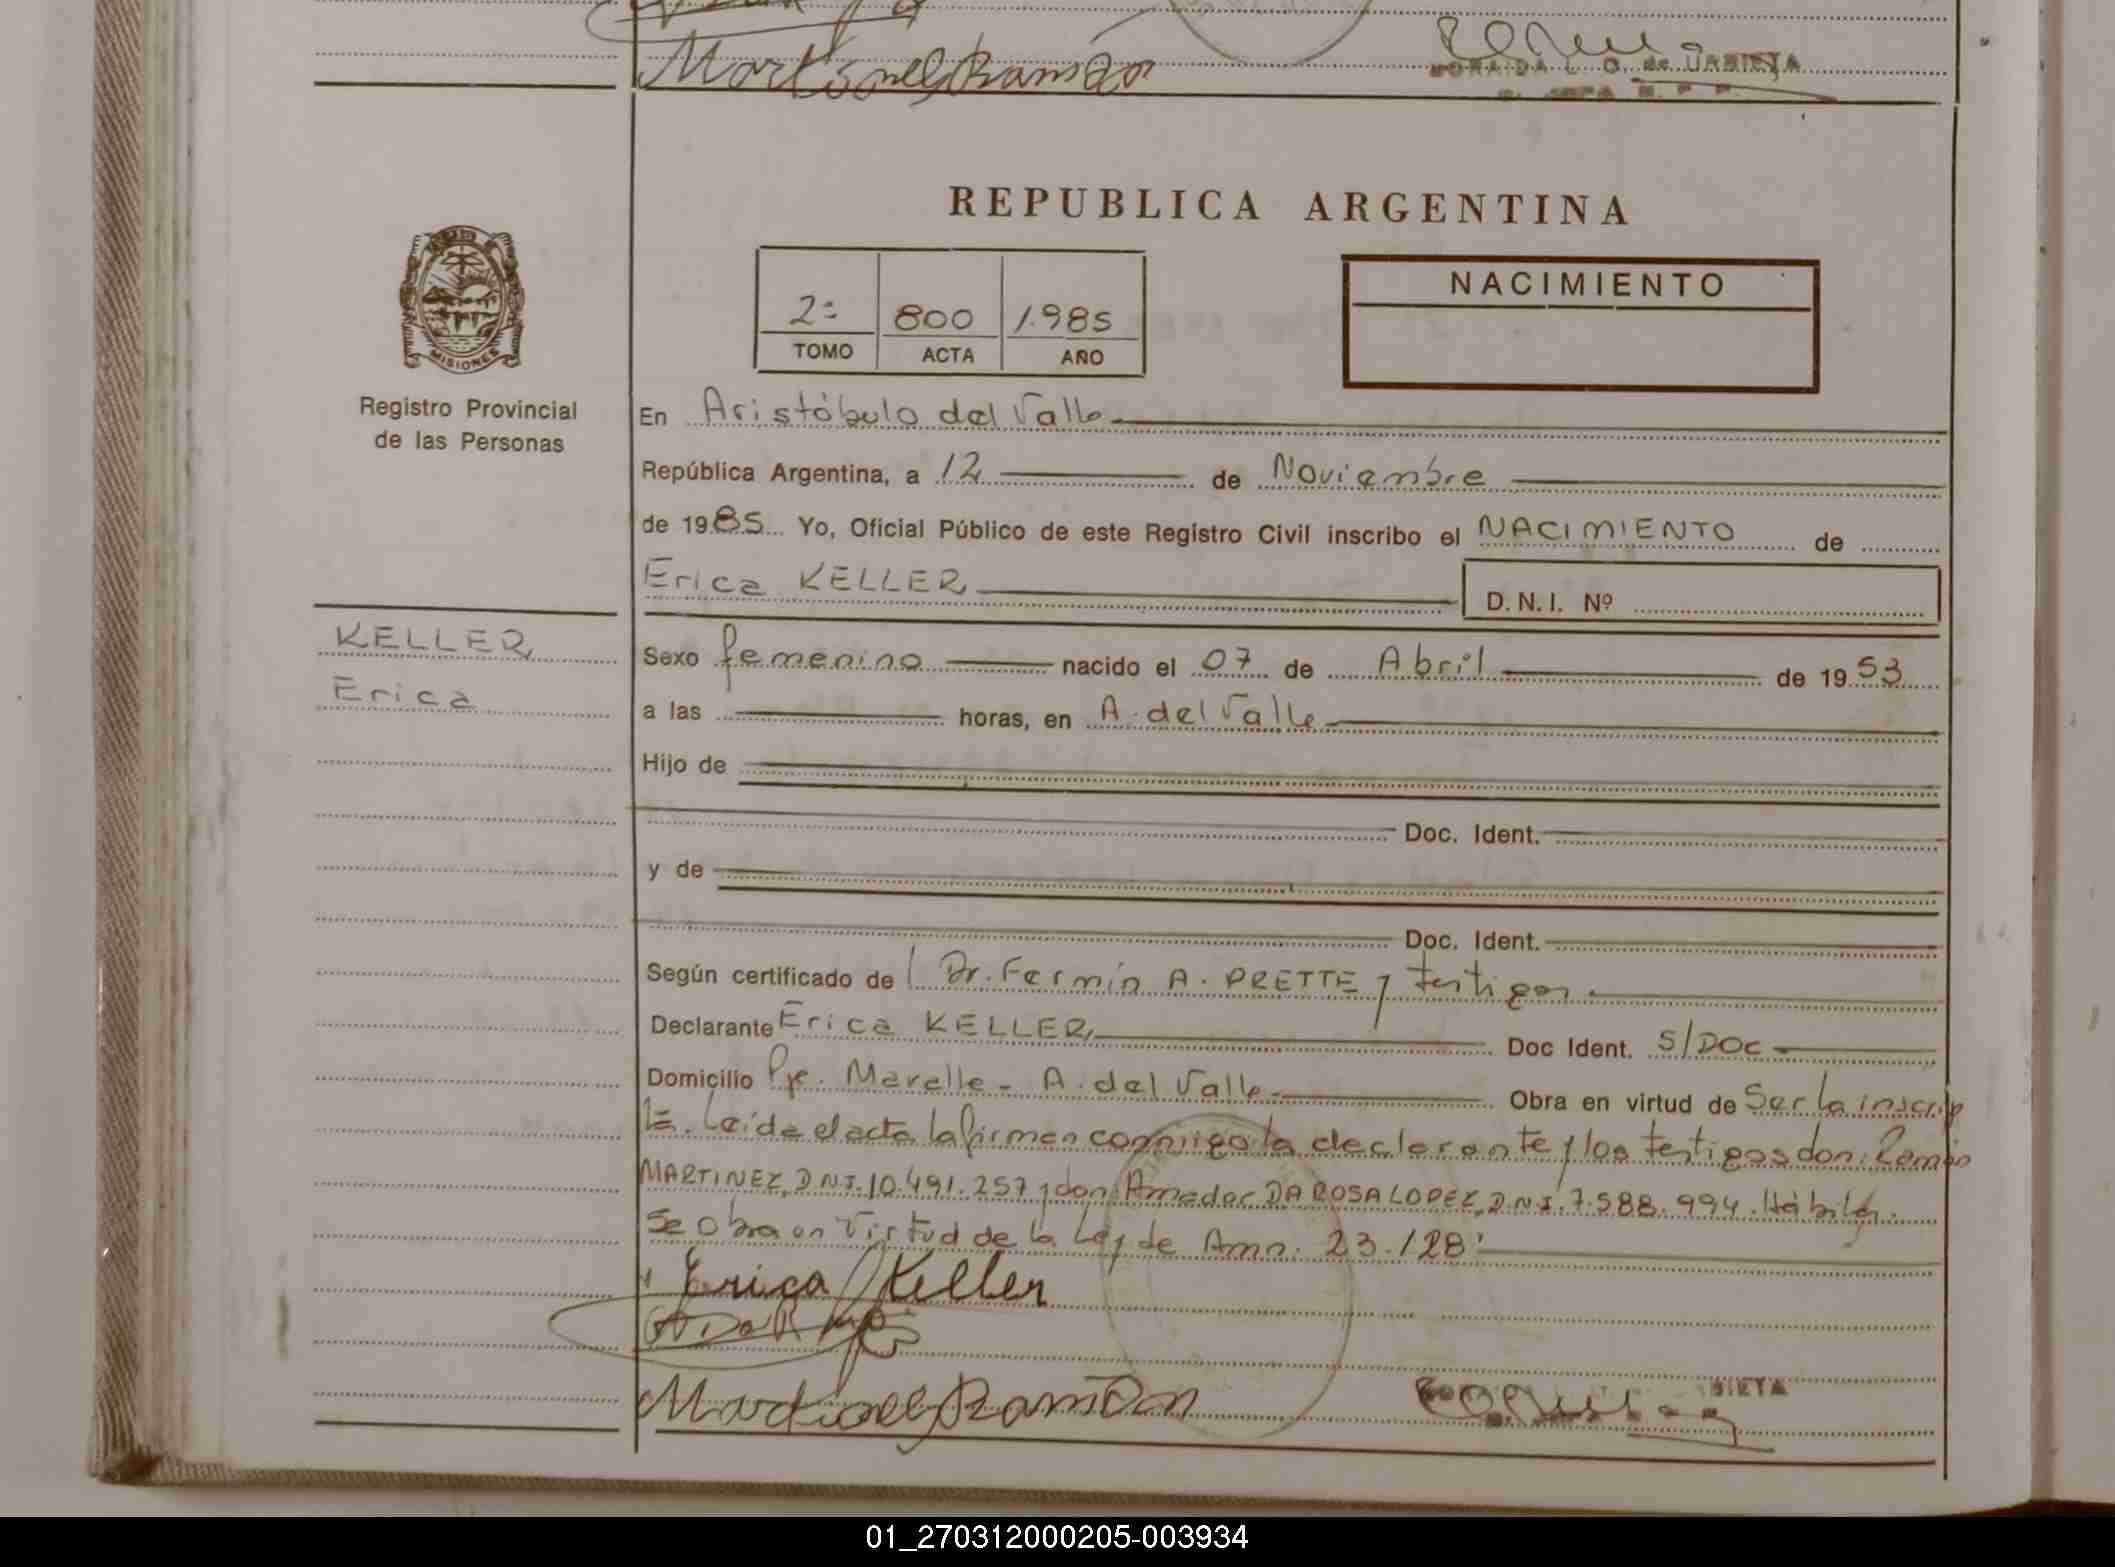 Martinez Ramón
MORAIDA L. O. de URBIETA
REPUBLICA ARGENTINA
2º 800 1.985
TOMO ACTA AÑO
NACIMIENTO
MISIONES
Registro Provincial
de las Personas
En Aristóbulo del Valle
República Argentina, a 12 de Noviembre
de 1985 Yo, Oficial Público de este Registro Civil inscribo el NACIMIENTO de
Erica KELLER
D.N.I. Nº
KELLER
Erica
Sexo femenino nacido el 07 de Abril de 1953
a las horas, en A. del Valle
Hijo de
Doc. Ident.
y de
Doc. Ident.
Según certificado de Dr. Fermín A. PRETTE y testigos.
Declarante Erica KELLER Doc Ident. S/DOC
Domicilio Pje. Maralle - A. del Valle Obra en virtud de Ser la inscrip
ta. Leída el acta la firman conmigo la declarante y los testigos don: Ramón
MARTINEZ, D.N.I. 10.491.257 y don: Amador DA ROSA LOPEZ, D.N.I. 7.588.994. Hábiles.
Se obra en Virtud de la Ley de Amn. 23.128
Erica Keller
Martinez Ramón
BIETA
01_270312000205-003934